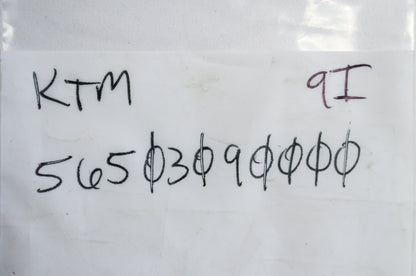 KTM 9I
56503090000